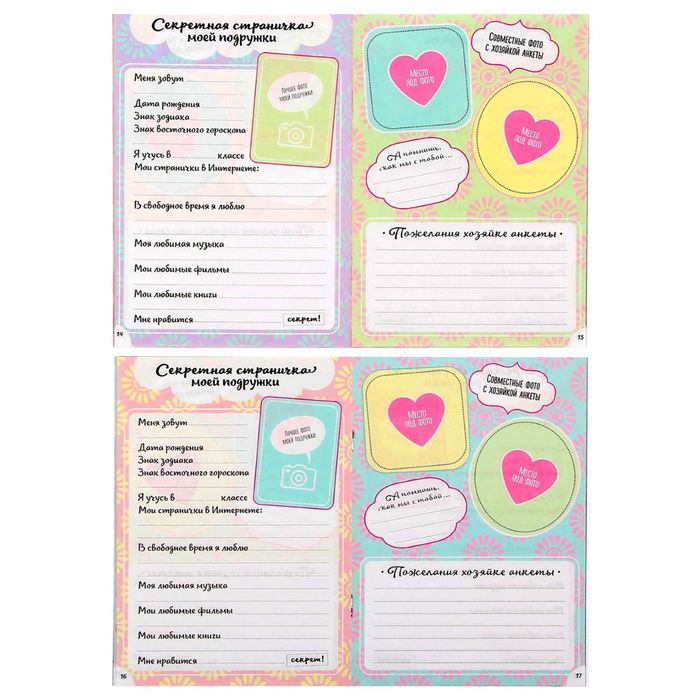 Секретная страничка
моей подружки
Меня зовут
Дата рождения
Знак зодиака
Знак восточного гороскопа
Я учусь в классе
Мои странички в Интернете:
В свободное время я люблю
Моя любимая музыка
Мои любимые фильмы
Мои любимые книги
Мне нравится
секрет!
Лучшее фото
моей подружки
14
Место
под фото
Совместные фото
с хозяйкой анкеты
Место
под фото
А помнишь,
как мы с тобой...
· Пожелания хозяйке анкеты ·
15
Секретная страничка
моей подружки
Меня зовут
Дата рождения
Знак зодиака
Знак восточного гороскопа
Я учусь в классе
Мои странички в Интернете:
В свободное время я люблю
Моя любимая музыка
Мои любимые фильмы
Мои любимые книги
Мне нравится
секрет!
Лучшее фото
моей подружки
16
Место
под фото
Совместные фото
с хозяйкой анкеты
Место
под фото
А помнишь,
как мы с тобой...
· Пожелания хозяйке анкеты ·
17